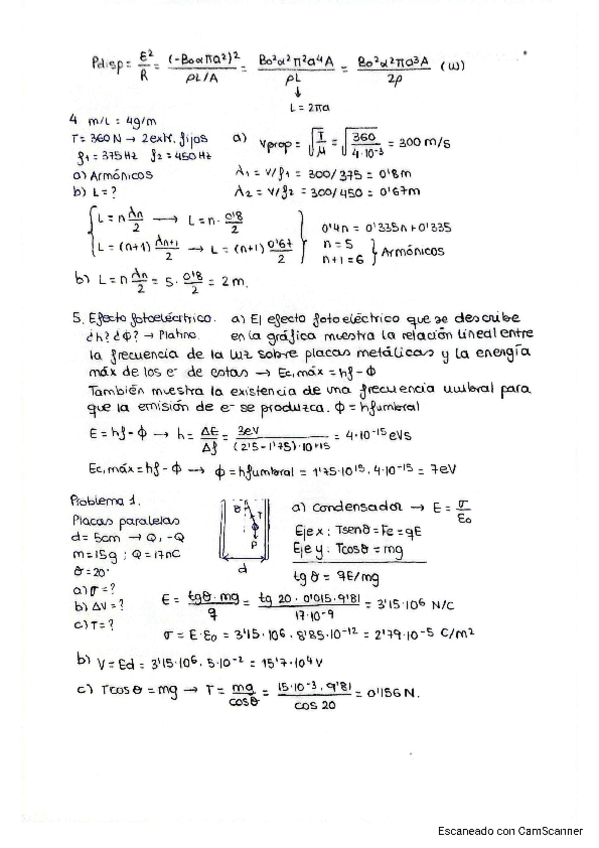 Pdisp = ε²/R = (-B₀απa²)²/(ρL/A) = B₀²α²π²a⁴A/ρL = B₀²α²πa³A/2ρ (W)
↓
L = 2πa
4. m/L = 4g/m
T = 360 N → 2 extr. fijos
f₁ = 375 Hz f₂ = 450 Hz
a) Armónicos
b) L = ?
a) Vprop = √(T/μ) = √(360/4·10⁻³) = 300 m/s
λ₁ = v/f₁ = 300/375 = 0'8m
λ₂ = v/f₂ = 300/450 = 0'67m
L = n λn/2 → L = n · 0'8/2
L = (n+1) λn+1/2 → L = (n+1) 0'67/2
0'4n = 0'335n + 0'335
n = 5
n+1 = 6 } Armónicos
b) L = n λn/2 = 5 · 0'8/2 = 2m.
5. Efecto fotoeléctrico. a) El efecto fotoeléctrico que se describe
¿h? ¿Φ? → Platino. en la gráfica muestra la relación lineal entre
la frecuencia de la luz sobre placas metálicas y la energía
máx de los e⁻ de estas → Ec,máx = hf - Φ
También muestra la existencia de una frecuencia umbral para
que la emisión de e⁻ se produzca. Φ = hfumbral
E = hf - Φ → h = ΔE/Δf = 3eV/(2'5 - 1'75)·10⁺¹⁵ = 4·10⁻¹⁵ eVs
Ec,máx = hf - Φ → Φ = hfumbral = 1'75·10¹⁵ · 4·10⁻¹⁵ = 7eV
Problema 1.
Placas paralelas
d = 5cm → Q, -Q
m = 15g ; Q = 17nC
θ = 20°
a) σ = ?
b) ΔV = ?
c) T = ?
θ T
F
P
d
a) condensador → E = σ/ε₀
Eje x : Tsenθ = Fe = qE
Eje y : Tcosθ = mg
tg θ = qE/mg
E = tgθ · mg/q = tg 20 · 0'015 · 9'81/17·10⁻⁹ = 3'15·10⁶ N/C
σ = E · ε₀ = 3'15 · 10⁶ · 8'85·10⁻¹² = 2'79·10⁻⁵ C/m²
b) V = Ed = 3'15·10⁶ · 5·10⁻² = 15'7·10⁴ V
c) Tcosθ = mg → T = mg/cosθ = 15·10⁻³ · 9'81/cos 20 = 0'156 N.
Escaneado con CamScanner